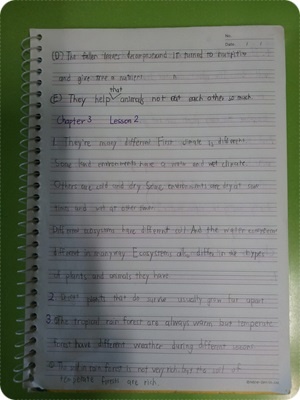 No.
Date
(D) The fallen leaves decomposed is turned to
and give tree a nutrient
that
(E) They help animals not eat each other so much
Chapter 3 Lesson 2
1. They're many different First climate is different
Some land environments have a warm and wet climate.
Others are cold and dry. Some environments are dry at some
times and wet at other times
Different ecosystems have different soil. And the
different in many way. Ecosystems also differ in the types
of plants and animals they have
2. Their plants that do survive usually grow far apart
3. The tropical rain forest are always warm but temperate
forest have different weather during different seasons
The soil in rain forest is not very rich but the soil of
temperate forests are rich.